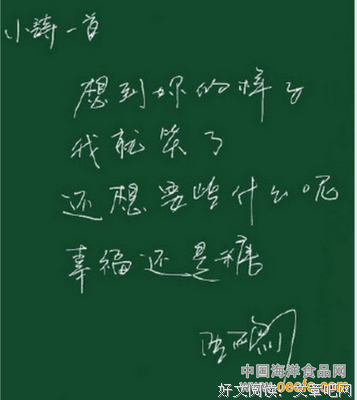 小诗一首
想到你的样子
我就笑了
还想要些什么呢
幸福还是糖
中国海洋食品网
www.oeofo.com
好文阅读：文章吧网